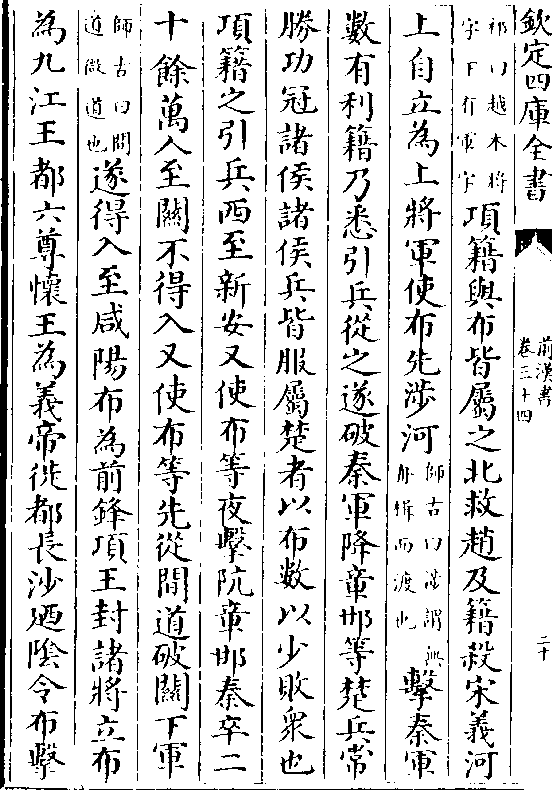 欽定四庫全書
前漢書
卷三十四
二十
祁曰越本將
字下有軍字
項籍與布皆屬之北救趙及籍殺宋義河
上自立為上將軍使布先涉河
師古曰涉謂無
舟楫而渡也
擊秦軍
數有利籍乃悉引兵從之遂破秦軍降章邯等楚兵常
勝功冠諸侯諸侯兵皆服屬楚者以布數以少敗衆也
項籍之引兵西至新安又使布等夜擊阬章邯秦卒二
十餘萬人至關不得入又使布等先從間道破關下軍
師古曰間
道微道也
遂得入至咸陽布為前鋒項王封諸將立布
為九江王都六尊懷王為義帝徙都長沙廼陰令布擊